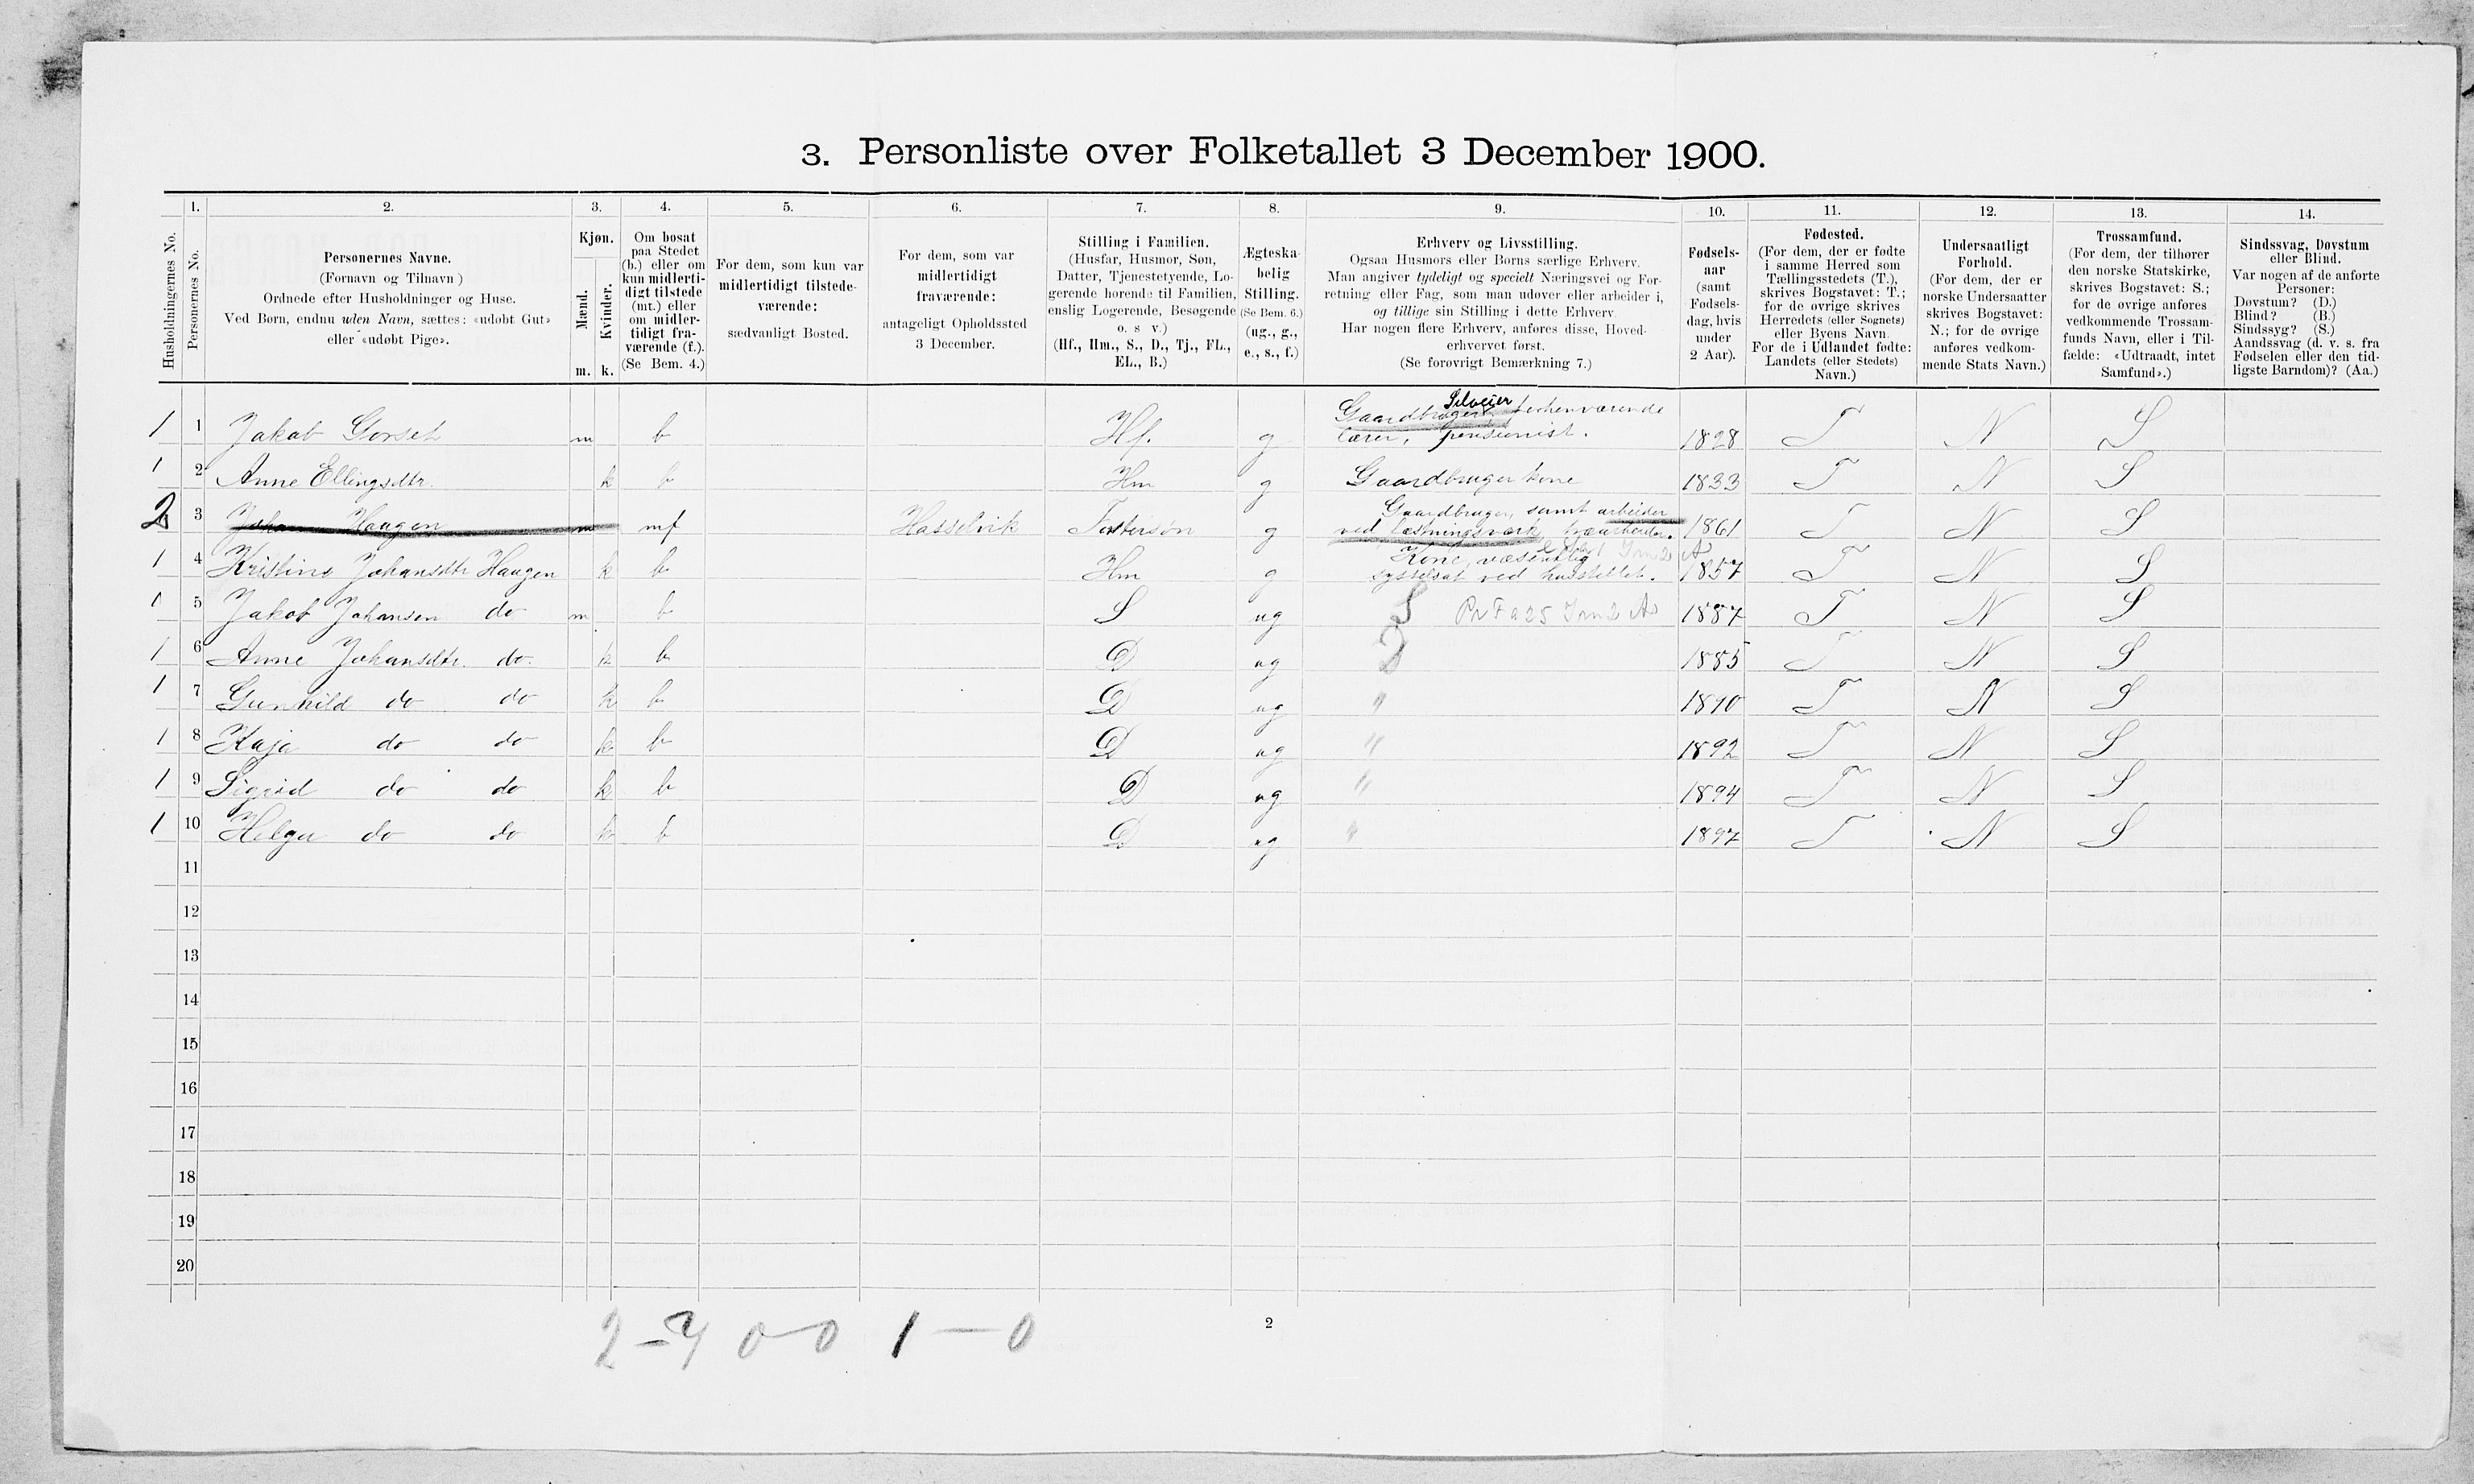 3. Personliste over Folketallet 3 December 1900.
1. 2. 3. 4. 5. 6. 7. 8. 9. 10. 11. 12. 13. 14.
Husholdningernes No.
Personernes No.
Personernes Navne.
(Fornavn og Tilnavn)
Ordnede efter Husholdninger og Huse.
Ved Børn, endnu uden Navn, sættes: «udøbt Gut»
eller «udøbt Pige».
Kjøn.
Mænd.
Kvinder.
m. k.
Om bosat
paa Stedet
(b.) eller om
kun midlerti-
digt tilstede
(mt.) eller
om midler-
tidigt fra-
værende (f.).
(Se Bem. 4.)
For dem, som kun var
midlertidigt tilstede-
værende:
sædvanligt Bosted.
For dem, som var
midlertidigt
fraværende:
antageligt Opholdssted
3 December.
Stilling i Familien.
(Husfar, Husmor, Søn,
Datter, Tjenestetyende, Lo-
gerende hørende til Familien,
enslig Logerende, Besøgende
o. s v.)
(Hf., Hm., S., D., Tj., FL.,
EL., B.)
Ægteska-
belig
Stilling.
(Se Bem. 6.)
(ug., g.,
e., s., f.)
Erhverv og Livsstilling.
Ogsaa Husmors eller Børns særlige Erhverv.
Man angiver tydeligt og specielt Næringsvei og For-
retning eller Fag, som man udøver eller arbeider i,
og tillige sin Stilling i dette Erhverv.
Har nogen flere Erhverv, anføres disse, Hoved-
erhvervet først.
(Se forøvrigt Bemærkning 7.)
Fødsels-
aar
(samt
Fødsels-
dag, hvis
under
2 Aar).
Fødested.
(For dem, der er fødte
i samme Herred som
Tællingsstedets (T.),
skrives Bogstavet: T.;
for de øvrige skrives
Herredets (eller Sognets)
eller Byens Navn.
For de i Udlandet fødte:
Landets (eller Stedets)
Navn.)
Undersaatligt
Forhold.
(For dem, der er
norske Undersaatter
skrives Bogstavet:
N.; for de øvrige
anføres vedkom-
mende Stats Navn.)
Trossamfund.
(For dem, der tilhører
den norske Statskirke,
skrives Bogstavet: S.;
for de øvrige anføres
vedkommende Trossam-
funds Navn, eller i Til-
fælde: «Udtraadt, intet
Samfund».)
Sindssvag, Døvstum
eller Blind.
Var nogen af de anførte
Personer:
Døvstum? (D.)
Blind? (B.)
Sindssyg? (S.)
Aandssvag (d. v. s. fra
Fødselen eller den tid-
ligste Barndom)? (Aa.)
Selveier
Gaardbruger, forhenværende
1 1 Jakob Gorset m b Hf. g lærer, pensionist. 1828 T N S
1 2 Anne Ellingsdtr. k b Hm g Gaardbruger kone 1833 T N S
Gaardbruger, samt arbeider
2 3 Johan Haugen m mf Hasselvik g ved 1861 T N S
Kone, væsentlig
1 4 Kristine Johansdtr Haugen k b Hm g sysselsat ved husstellet. 1857 T N S
1 5 Jakob Johansen do m b S ug S 1887 T N S
1 6 Anne Johansdtr. do. k b D ug D 1885 T N S
1 7 Gunhild do do k b D ug " 1890 T N S
1 8 Kaja do do k b D ug " 1892 T N S
1 9 Sigrid do do k b D ug " 1894 T N S
1 10 Helga do do k b D ug " 1897 T N S
11
12
13
14
15
16
17
18
19
20
2 – 7 0 – 0 1 – 0
2